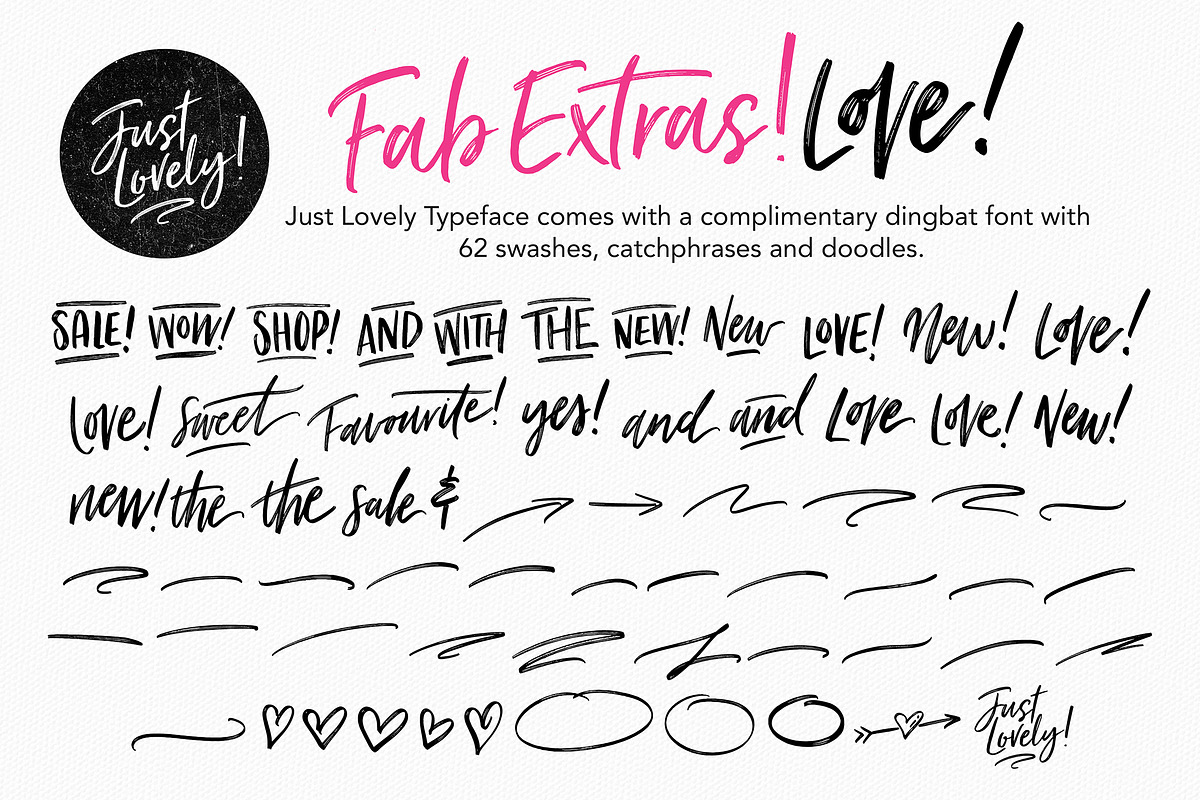 Just
Lovely!
Fab Extras! Love!
Just Lovely Typeface comes with a complimentary dingbat font with
62 swashes, catchphrases and doodles.
SALE! WOW! SHOP! AND WITH THE NEW! New LOVE! New! Love!
Love! Sweet Favourite! yes! and and Love Love! New!
new! the the sale &
Just
Lovely!